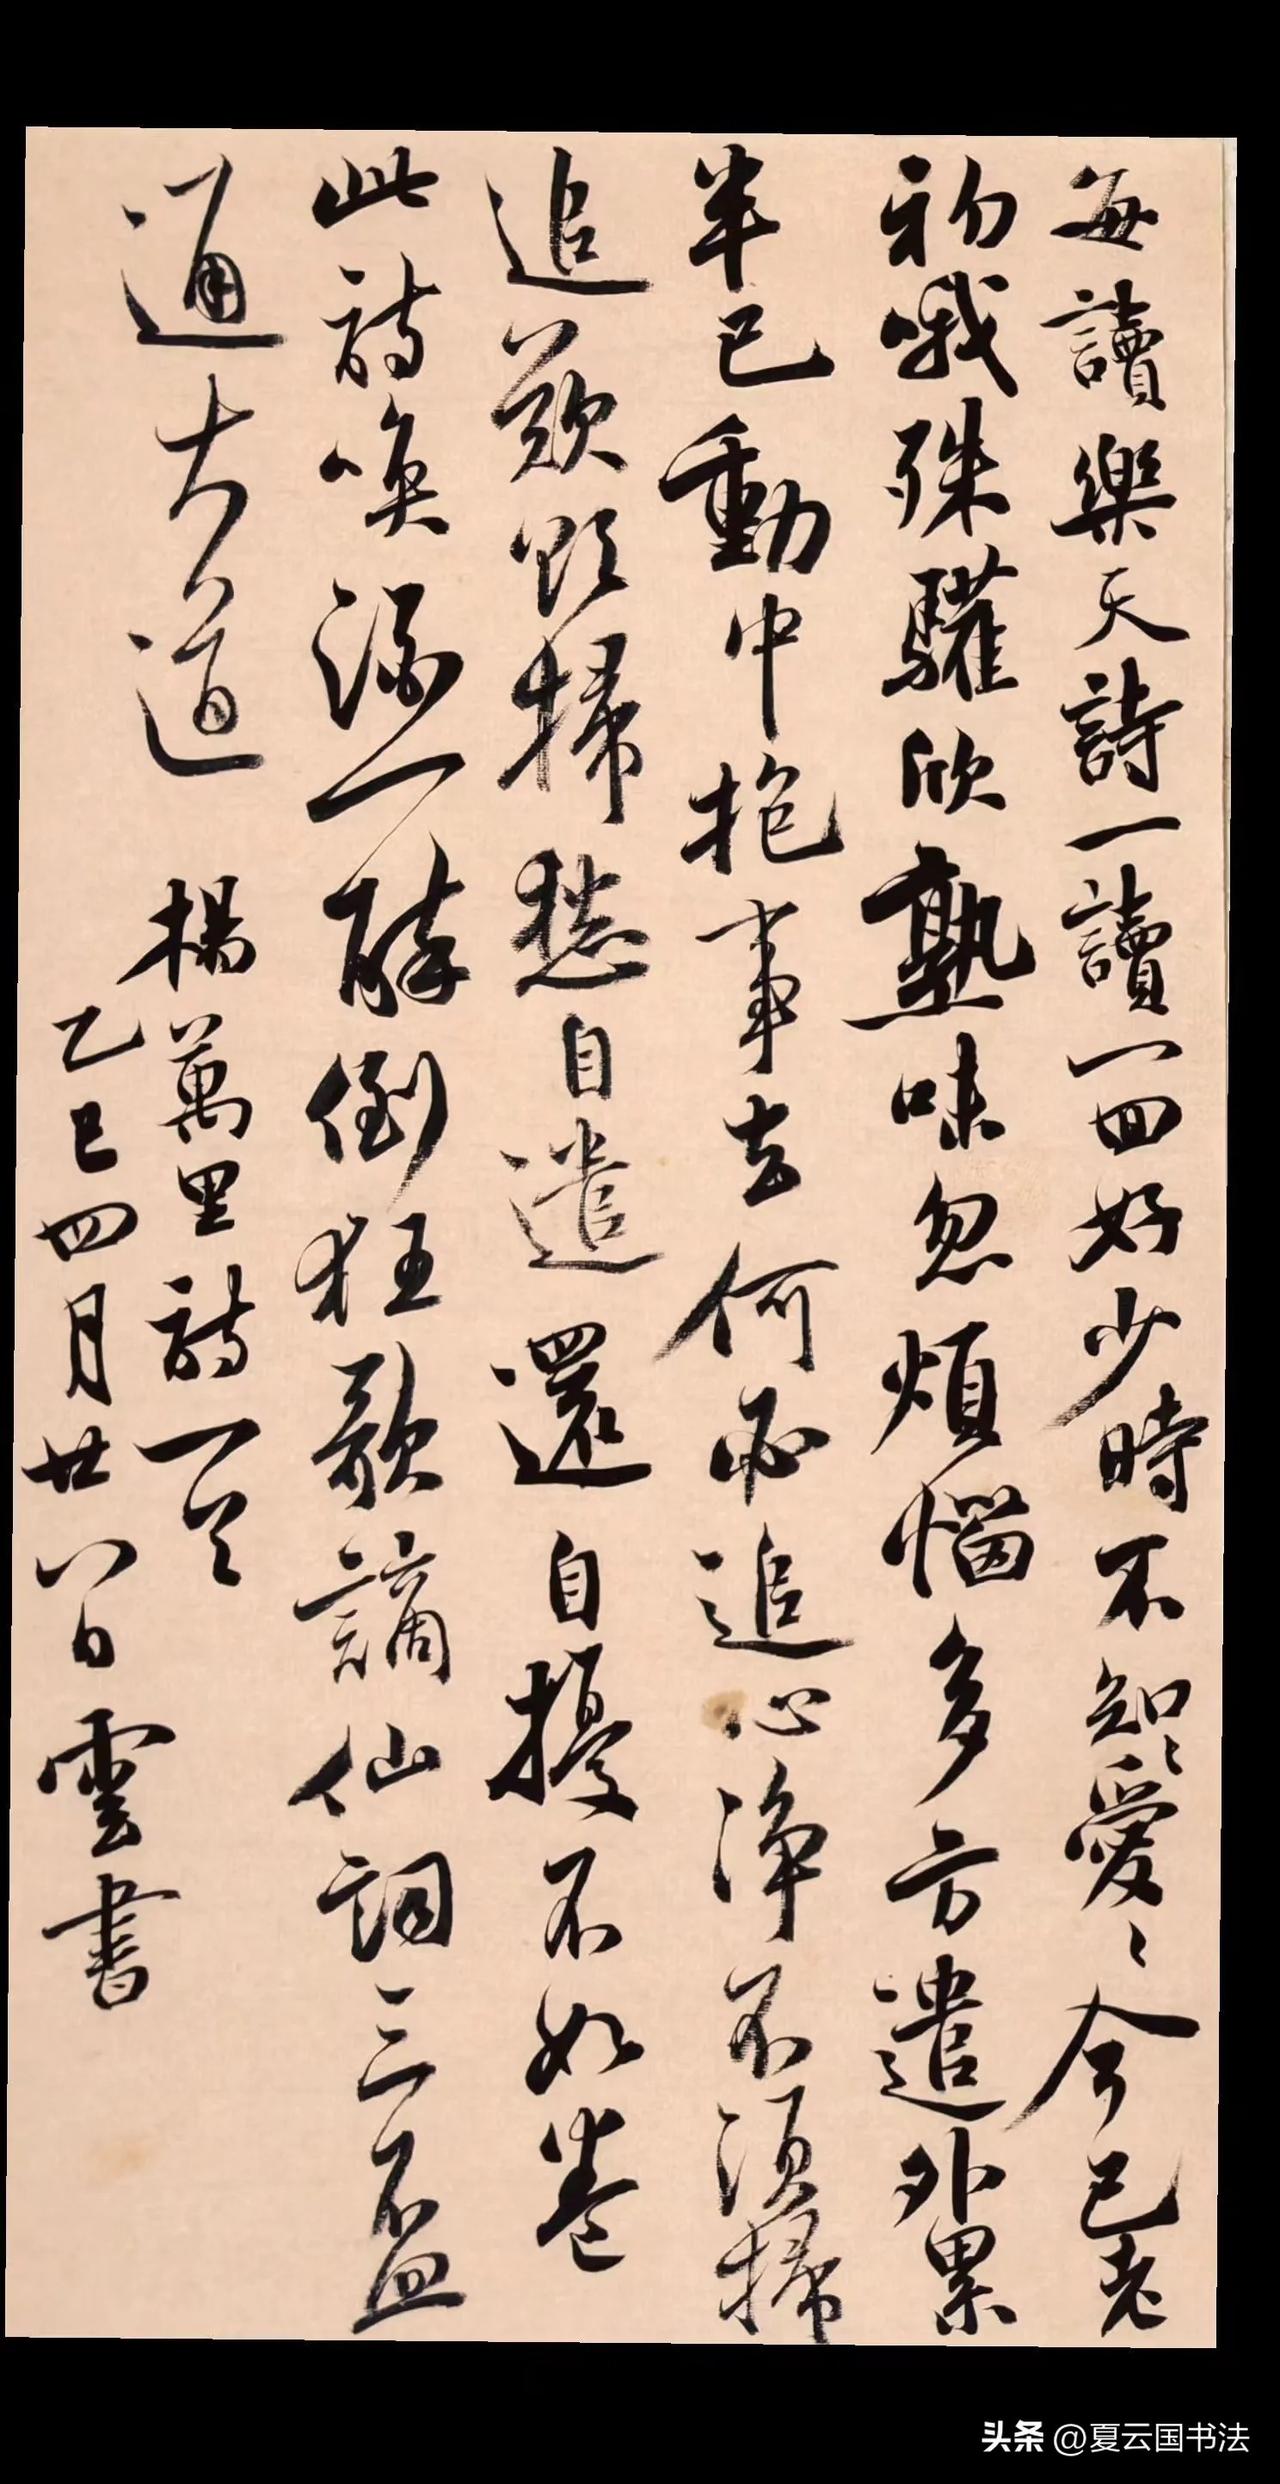 每讀樂天詩一讀一回好少時不知〻愛〻今已老
初哦殊驩欣熟味忽煩惱多方遣外累
半已動中抱事去何必追心淨不須掃
追歡欲掃愁自遣還自擾不如卷
此詩喚酒一醉倒狂歌謫仙詞三盃
通大道 楊萬里詩一首
乙巳四月廿八日雲書
头条 @夏云国书法